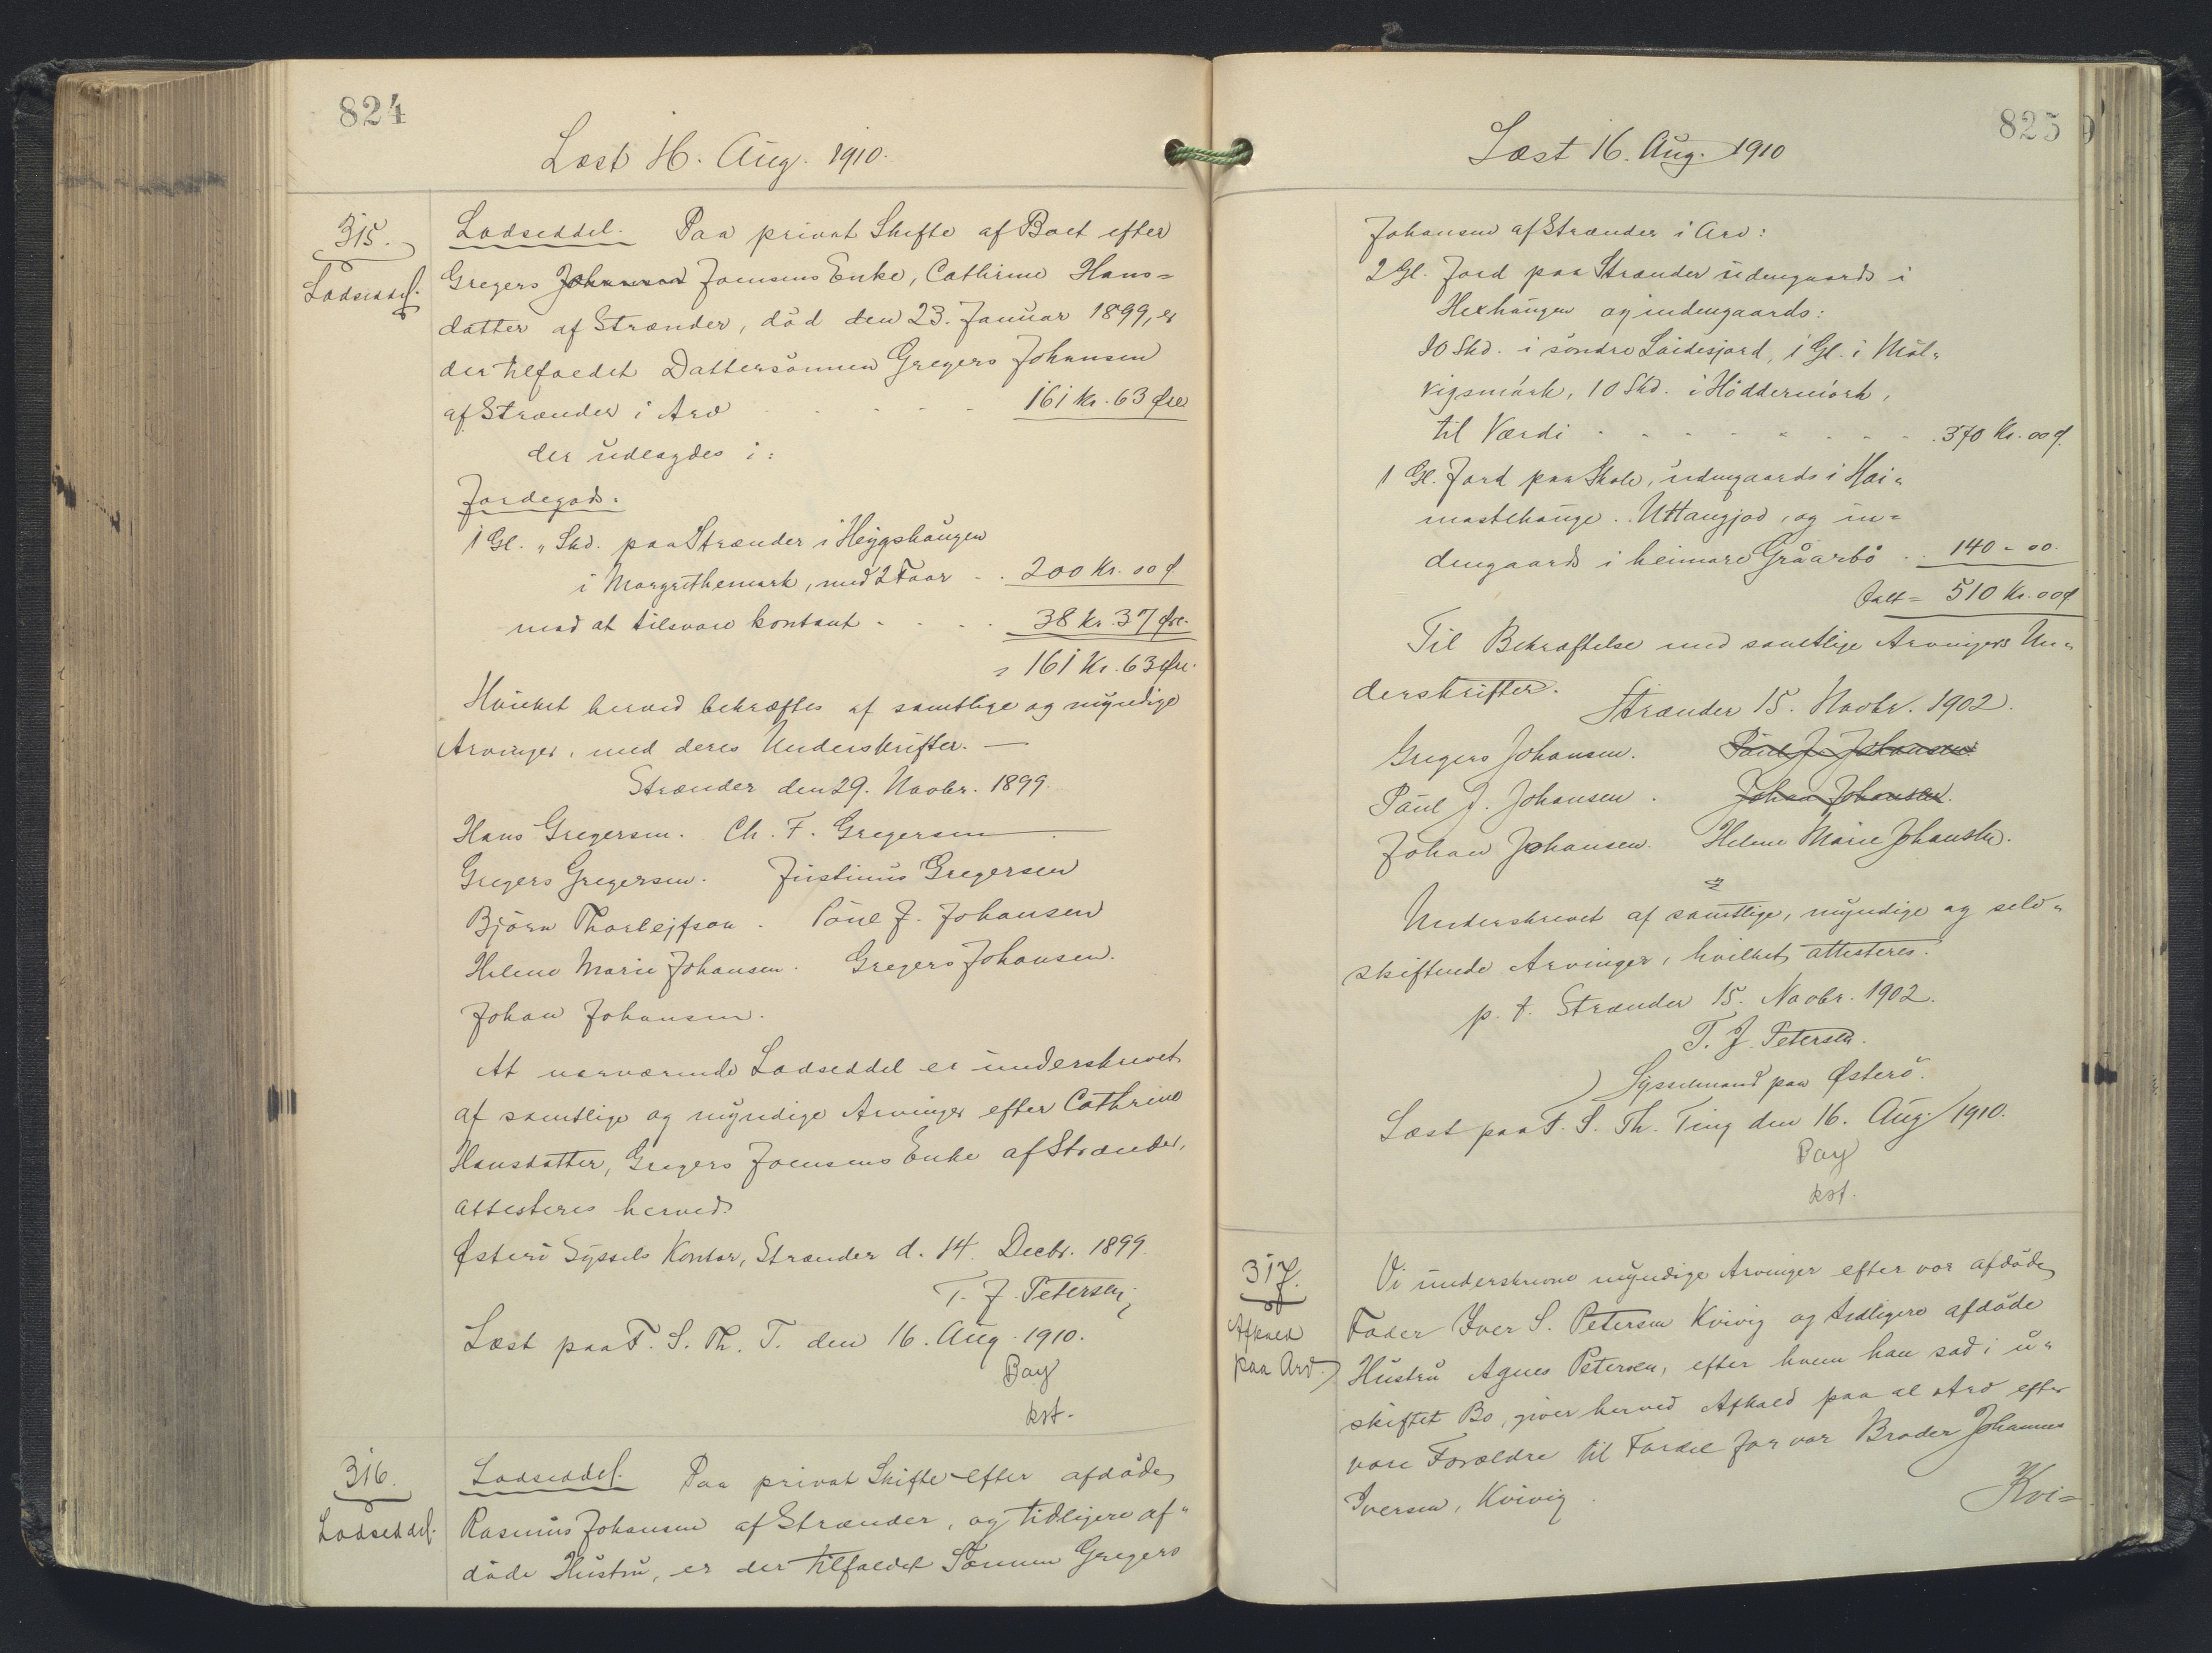 824
Læst 16. Aug. 1910.
315.
Lodseddel.
Lodseddel. Paa privat Skifte af Boet efter
Gregers Johansen Joensens Enke, Cathrine Hans=
datter af Strænder, död den 23. Januar 1899, er
der tilfaldet Dattersönnen Gregers Johansen
af Strænder i Arv 161 Kr. 63 Øre
der udlagdes i:
Jordegods.
1 Gl. " Skd. paa Strænder i Heygshaugen
i Margrethemark, med 2 Faar 200 Kr. 00 Ø
mod at tilsvare kontant 38 Kr. 37 Øre.
= 161 Kr. 63 Øre.
Hvilket herved bekræftes af samtlige og myndige
Arvinger, med deres Underskrifter. —
Strænder den 29. Novbr. 1899.
Hans Gregersen. Ch. F. Gregersen
Gregers Gregersen. Justinus Gregersen
Björn Thorlejfson. Poul J. Johansen
Helene Marie Johansen. Gregers Johansen.
Johan Johansen.
At nærværende Lodseddel er underskrevet
af samtlige og myndige Arvinger efter Cathrine
Hansdatter, Gregers Joensens Enke af Strænder,
attesteres herved.
Østerö Syssels Kontor, Strænder d. 14. Decbr. 1899.
T. J. Petersen
Læst paa F. S. Th. T. den 16. Aug. 1910.
Bay
kst.
316.
Lodseddel.
Lodseddel. Paa privat Skifte efter afdöde
Rasmus Johansen af Strænder, og tidligere af"
döde Hustru, er der tilfaldet Sönnen Gregers
825
Læst 16. Aug. 1910
Johansen af Strænder i Arv:
2 Gl. Jord paa Strænder udengaards i
Hexhaugen og indengaards:
10 Skd. i söndre Laidesjord, 1 Gl. i Möl"
vigsmörk, 10 Skd. i Höddemörk,
til Værdi 370 Kr. 00 Ø.
1 Gl. Jord paa Skole, udengaards i
Uttangjod, og in=
dengaards i heimare Gråarbö 140 " 00.
Ialt = 510 Kr. 00 Ø
Til Bekræftelse med samtlige Arvingers Un"
derskrifter.
Strænder 15. Novbr. 1902.
Gregers Johansen. Poul J. Johansen
Poul J. Johansen. Johan Johansen.
Johan Johansen. Helene Marie Johansen.
Underskrevet af samtlige, myndige og selv"
skiftende Arvinger, hvilket attesteres.
p. t. Strænder 15. Novbr. 1902.
T. J. Petersen.
Sysselmand paa Østerö.
Læst paa F. S. Th. Ting den 16. Aug. 1910.
Bay
kst.
317.
Afkald
paa Arv.
Vi underskrevne myndige Arvinger efter vor afdöde
Fader Iver S. Petersen Kvivig og tidligere afdöde
Hustru Agnes Petersen, efter hvem han sad i u"
skiftet Bo, giver herved Afkald paa al Arv efter
vore Forældre til Fordel for vor Broder Johannes
Iversen, Kvivig.
Kvi=